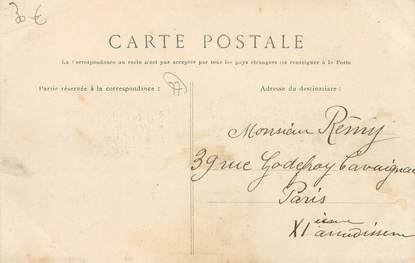 30 €
CARTE POSTALE
La Correspondance au recto n'est pas acceptée par tous les pays étrangers (se renseigner à la Poste
Partie réservée à la correspondance :
Adresse du destinataire :
Monsieur Rémy
39 rue Godefroy Cavaignac
Paris
XI ième arrondissem